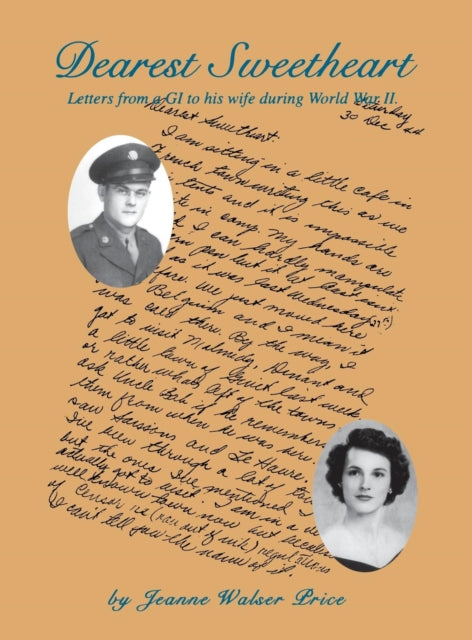 Dearest Sweetheart
Letters from a GI to his wife during World War II.
Saturday
30 Dec 44
Dearest Sweetheart:
I am sitting in a little cafe in
French town writing this as we
tents and it is impossible
in camp. My hands are
I can hardly manipulate
pen but it
as it was last Wednesday (27th)
We just moved here
Belgium and I mean it
was cold there. By the way, I
got to visit Malmedy, Dinant and
a little town of Givet last week
or rather whats left of the towns
ask Uncle if he remembers
them from when he was here.
saw Soissons and Le Havre.
I've been through a lot of
but the ones I've mentioned I
actually got to visit. I am in a
well known town now but because
of censor (man out of mile) regulations
I can't tell you the name of it.
by Jeanne Walser Price